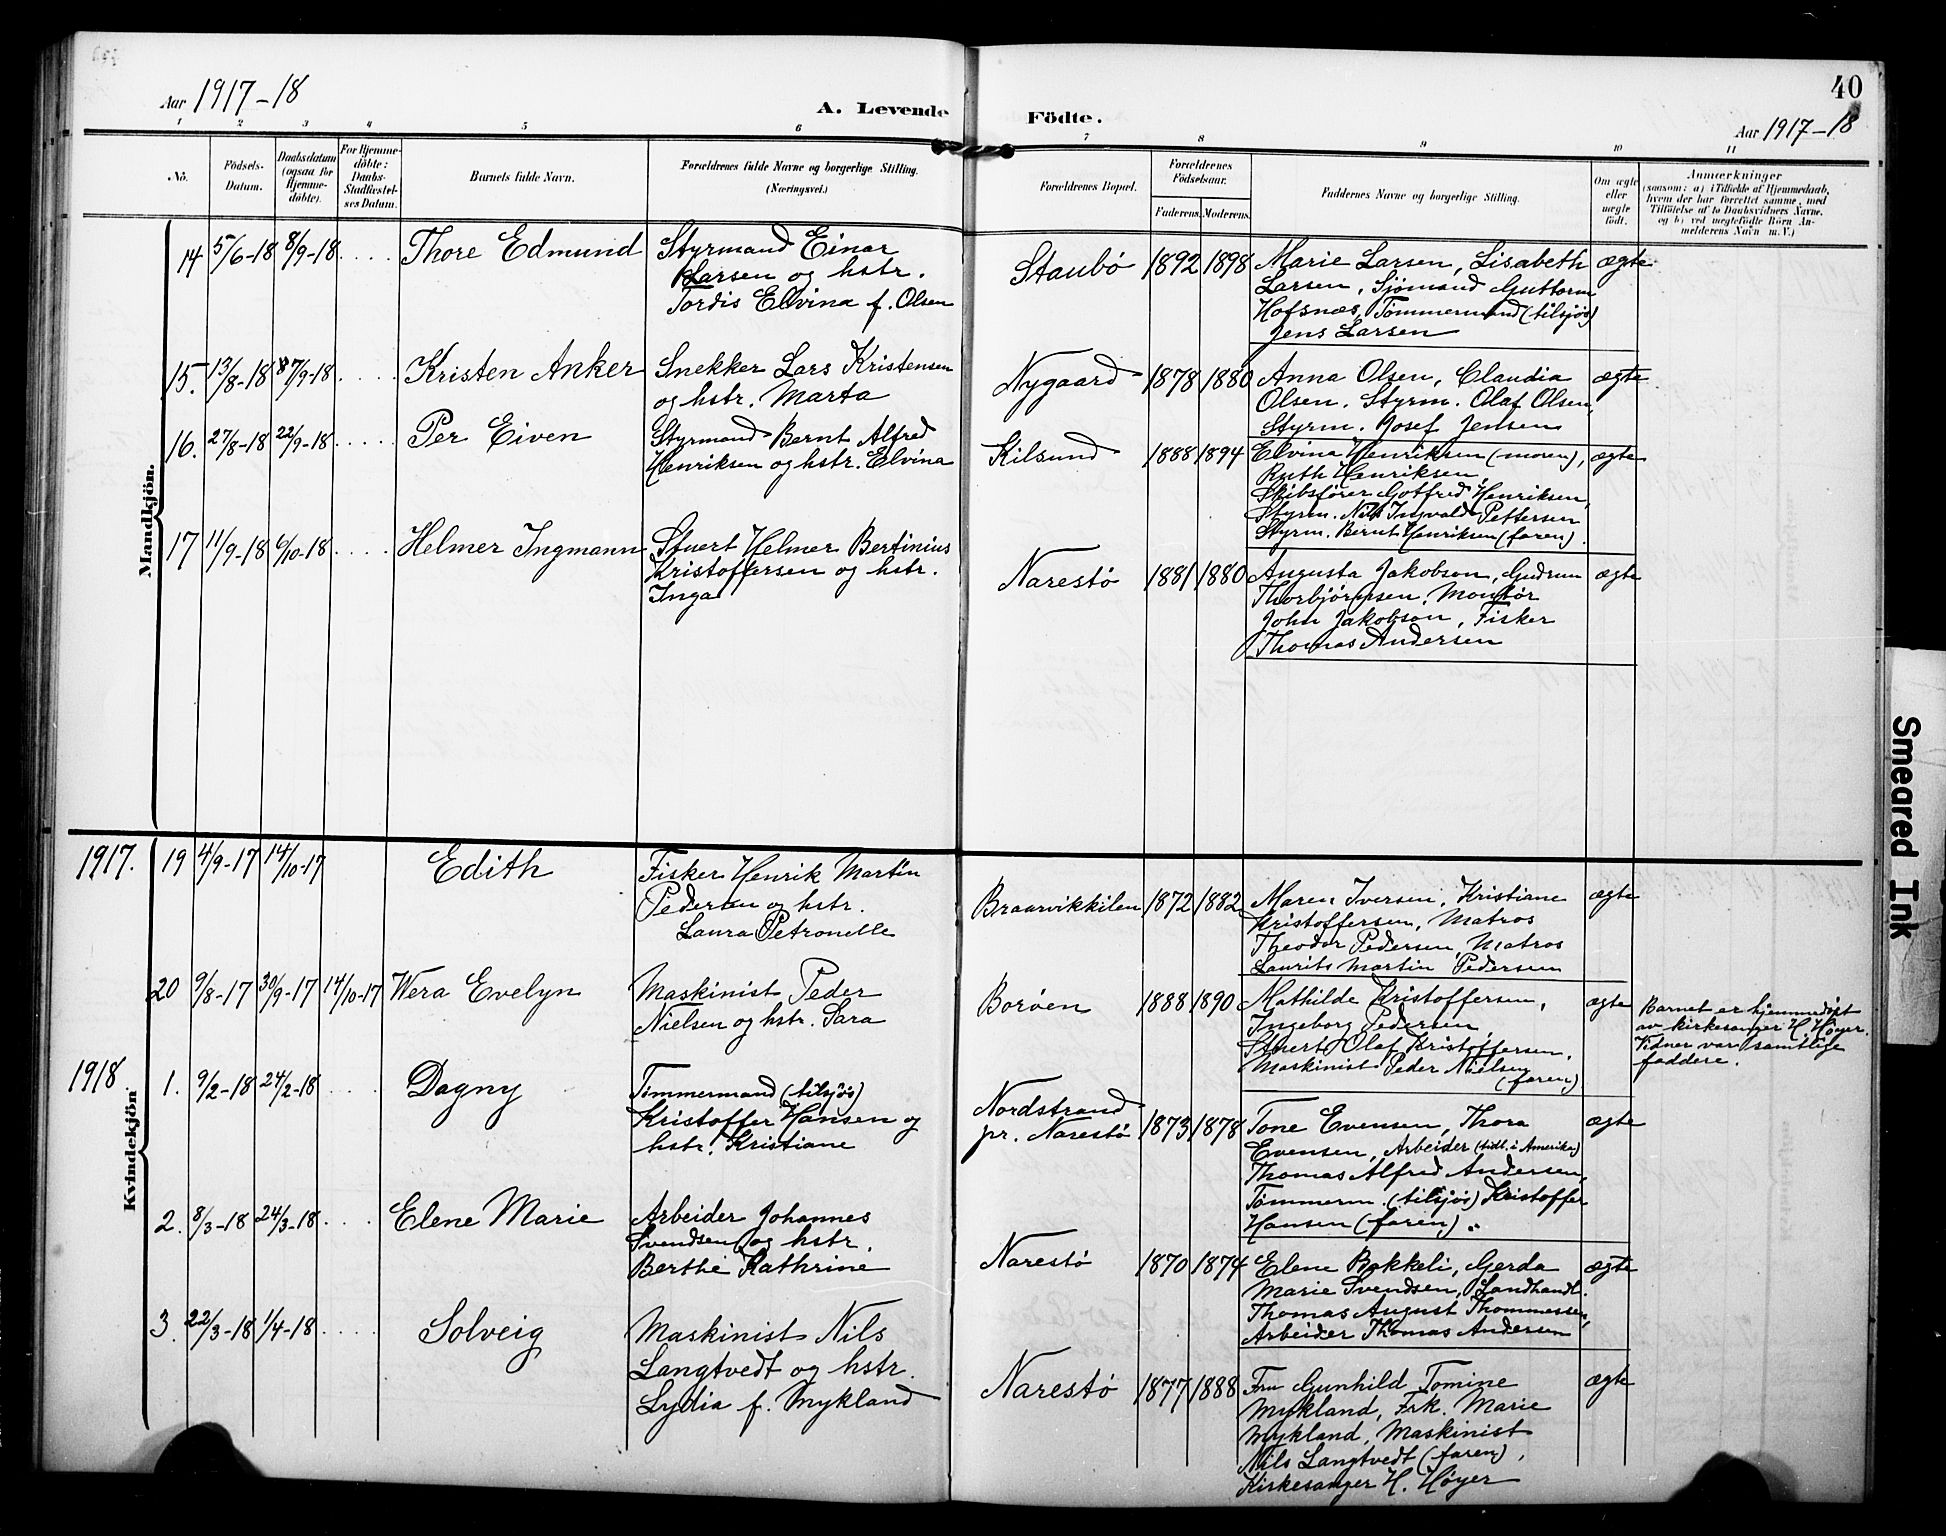 Aar 1917-18
A. Levende Födte.
40
Aar 1917-18
1 2 3 4 5 6 7 8 9 10 11
No.
Födsels-
Datum.
Daabsdatum
(ogsaa for
Hjemme-
döbte).
For Hjemme-
döbte:
Daabs-
Stadfæstel-
ses Datum.
Barnets fulde Navn.
Forældrenes fulde Navne og borgerlige Stilling.
(Næringsvei.)
Forældrenes Bopæl.
Forældrenes
Födselsaar.
Faderens. Moderens.
Faddernes Navne og borgerlige Stilling.
Om ægte
eller
uægte
födt.
Anmærkninger
(saasom: a) i Tilfælde af Hjemmedaab,
hvem der har forrettet samme, med
Tilföielse af to Daabsvidners Navne,
og b) ved uægtefödte Börn An-
melderens Navn m. V.)
Mandkjön.
14 5/6-18 8/9-18 Thore Edmund
Styrmand Einar
Larsen og hstr.
Tordis Elvina f. Olsen
Staubø 1892 1898
Marie Larsen, Lisabeth
Larsen, Sjømand Guttorm
Hofsnæs, Tømmermand (tilsjøs)
Jens Larsen
ægte
15. 13/8-18 8/9-18 Kristen Anker
Snekker Lars Kristensen
og hstr. Marta
Nygaard 1878 1880
Anna Olsen, Claudia
Olsen. Styrm. Olaf Olsen,
Styrm. Josef Jensen
ægte
16. 27/8-18 22/9-18 Per Eiven
Styrmand Bernt Alfred
Henriksen og hstr. Elvina
Kilsund 1888 1894
Elvina Henriksen (moren),
Ruth Henriksen,
Skibsfører Gotfred Henriksen,
Styrm. Nils Ingvald Pettersen
Styrm. Bernt Henriksen (faren).
ægte
17 11/9-18 6/10-18 Helmer Ingmann
Stuert Helmer Bertinius
Kristoffersen og hstr.
Inga
Narestø 1881 1880
Augusta Jakobson, Gudrun
Thorbjørnsen, Montør
John Jakobson, Fisker
Thomas Andersen
ægte
Kvindekjön
1917. 19 4/9-17 14/10-17 Edith
Fisker Henrik Martin
Pedersen og hstr.
Laura Petronelle
Braarvikkilen 1872 1882
Maren Iversen, Kristiane
Kristoffersen, Matros
Theodor Pedersen, Matros
Laurits Martin Pedersen
ægte
20 9/8-17 30/9-17 14/10-17 Wera Evelyn
Maskinist Peder
Nielsen og hstr. Sara
Borøen 1888 1890
Mathilde Kristoffersen,
Ingeborg Pedersen,
Stuert Olaf Kristoffersen,
Maskinist Peder Nielsen
(faren)
ægte
Barnet er hjemmedøpt
av kirkesanger H. Høyer.
Vidner var samtlige
faddere.
1918. 1. 9/2-18 24/2-18 Dagny
Tømmermand (tilsjøs)
Kristoffer Hansen og
hstr. Kristiane
Nordstrand
pr. Narestø 1873 1878
Tone Evensen, Thora
Evensen, Arbeider (tidl. i Amerika)
Thomas Alfred Andersen,
Tømmerm. (tilsjøs) Kristoffer
Hansen (faren).
ægte
2. 8/3-18 24/3-18 Elene Marie
Arbeider Johannes
Svendsen og hstr.
Berthe Kathrine
Narestø 1870 1874
Elene Bakkeli, Gerda
Marie Svendsen, Landhandl.
Thomas August Thommessen,
Arbeider Thomas Andersen
ægte
3. 22/3-18 1/4-18 Solveig
Maskinist Nils
Langtvedt og hstr.
Lydia f. Mykland
Narestø 1877 1888
Fru Gunhild Tomine
Mykland, Frk. Marie
Mykland, Maskinist
Nils Langtvedt (faren),
Kirkesanger H. Høyer
ægte
Smeared Ink